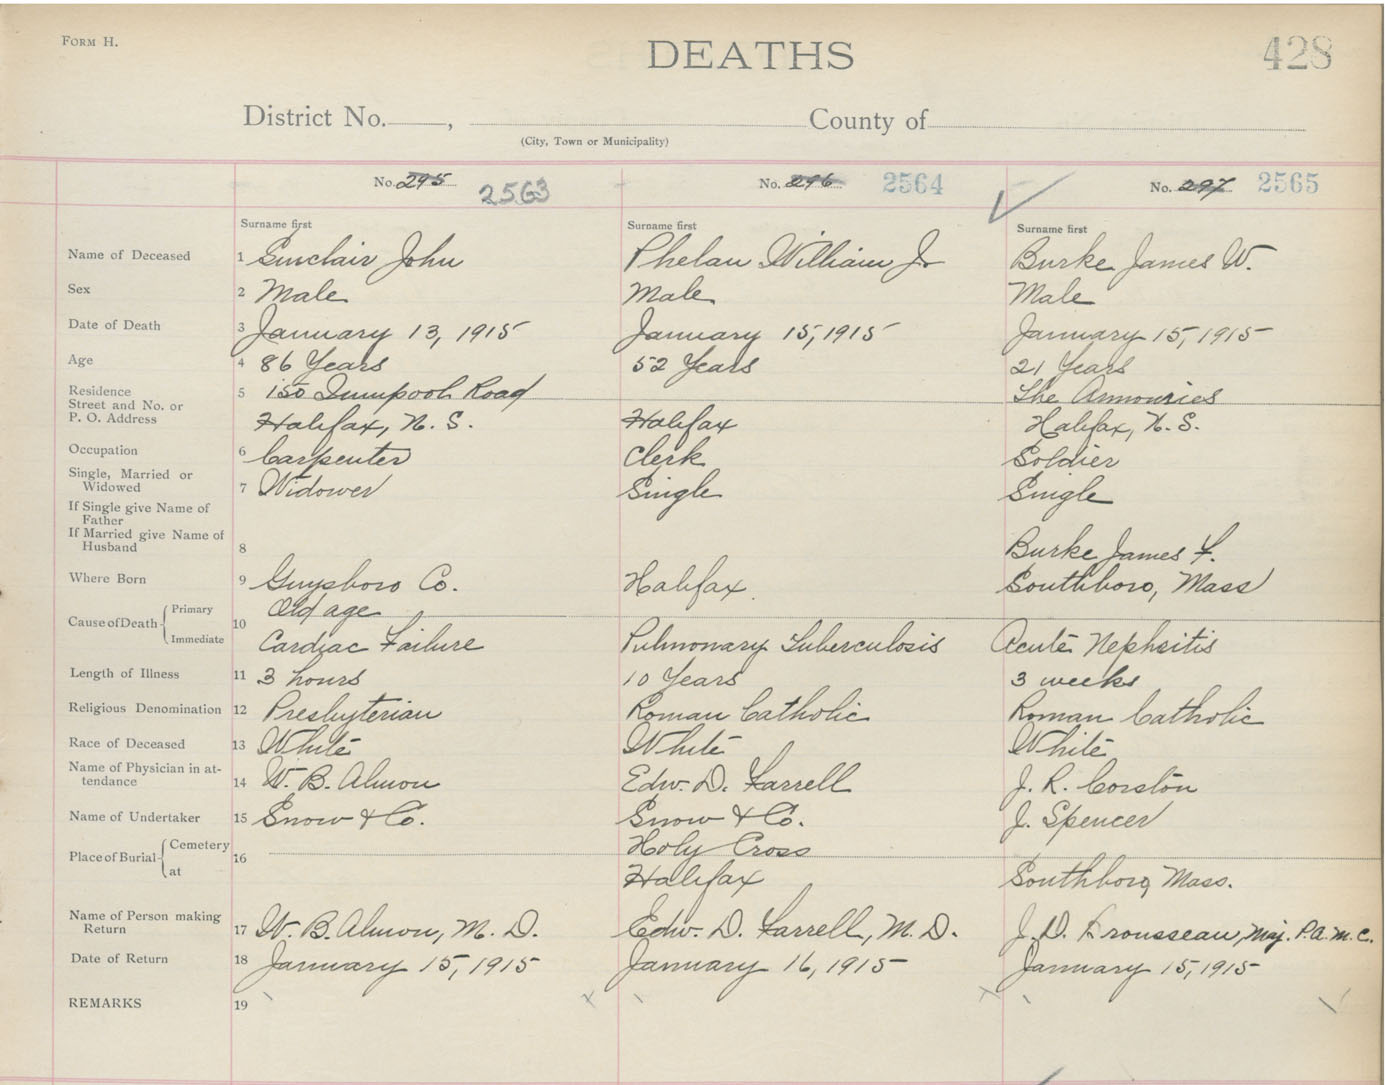 FORM H.
DEATHS
428
District No. , County of
(City, Town or Municipality)
No. 295 2563 No. 296 2564 No. 297 2565
Surname first Surname first Surname first
Name of Deceased 1 Sinclair John Phelan William J. Burke James W.
Sex 2 Male Male Male
Date of Death 3 January 13, 1915 January 15, 1915 January 15, 1915
Age 4 86 Years 52 Years 21 Years
Residence 5 150 Road The Armouries
Street and No. or
P. O. Address Halifax, N. S. Halifax Halifax, N. S.
Occupation 6 Carpenter Clerk Soldier
Single, Married or
Widowed 7 Widower Single Single
If Single give Name of
Father
If Married give Name of
Husband 8 Burke James F.
Where Born 9 Guysboro Co. Halifax. Southboro, Mass
Cause of Death Primary 10 Old age
Immediate Cardiac Failure Pulmonary Tuberculosis Acute Nephritis
Length of Illness 11 3 hours 10 Years 3 weeks
Religious Denomination 12 Presbyterian Roman Catholic Roman Catholic
Race of Deceased 13 White White White
Name of Physician in at-
tendance 14 W. B. Almon Edw. D. Farrell J. R. Corston
Name of Undertaker 15 Snow & Co. Snow & Co. J. Spencer
Place of Burial Cemetery 16 Holy Cross
at Halifax Southboro, Mass.
Name of Person making
Return 17 W. B. Almon, M. D. Edw. D. Farrell, M. D. J. D. Maj. P. A. M. C.
Date of Return 18 January 15, 1915 January 16, 1915 January 15, 1915
REMARKS 19